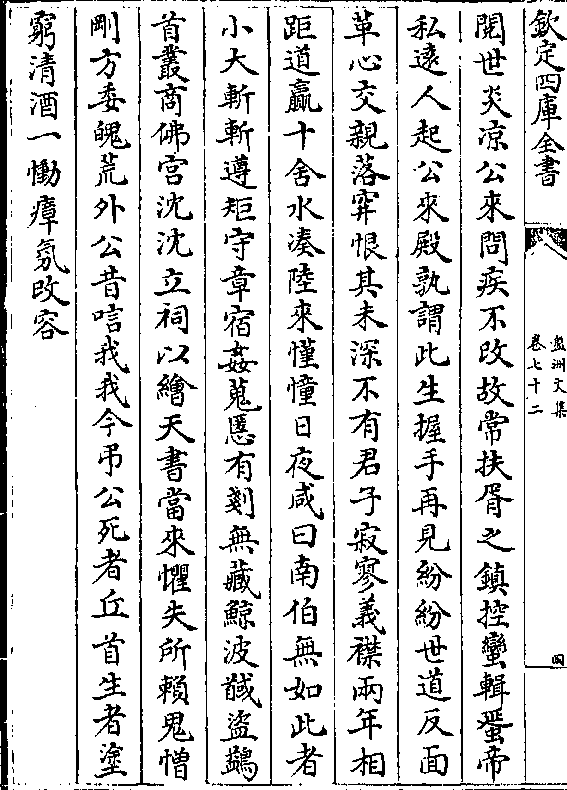 欽定四庫全書
盤洲文集
卷七十二
四
閱世炎凉公來問疾不改故常扶胥之鎮控蠻輯蜑帝
私遠人起公來殿孰謂此生握手再見紛紛世道反面
革心交親落穽恨其未深不有君子寂寥義襟兩年相
距道羸十舍水凑陸來憧憧日夜咸曰南伯無如此者
小大斬斬遵矩守章宿姦蒐慝有剗無藏鯨波馘盜鷁
首叢商佛宮沈沈立祠以繪天書當來懼失所賴鬼憎
剛方委魄荒外公昔唁我我今弔公死者丘首生者塗
窮清酒一慟瘴氛改容